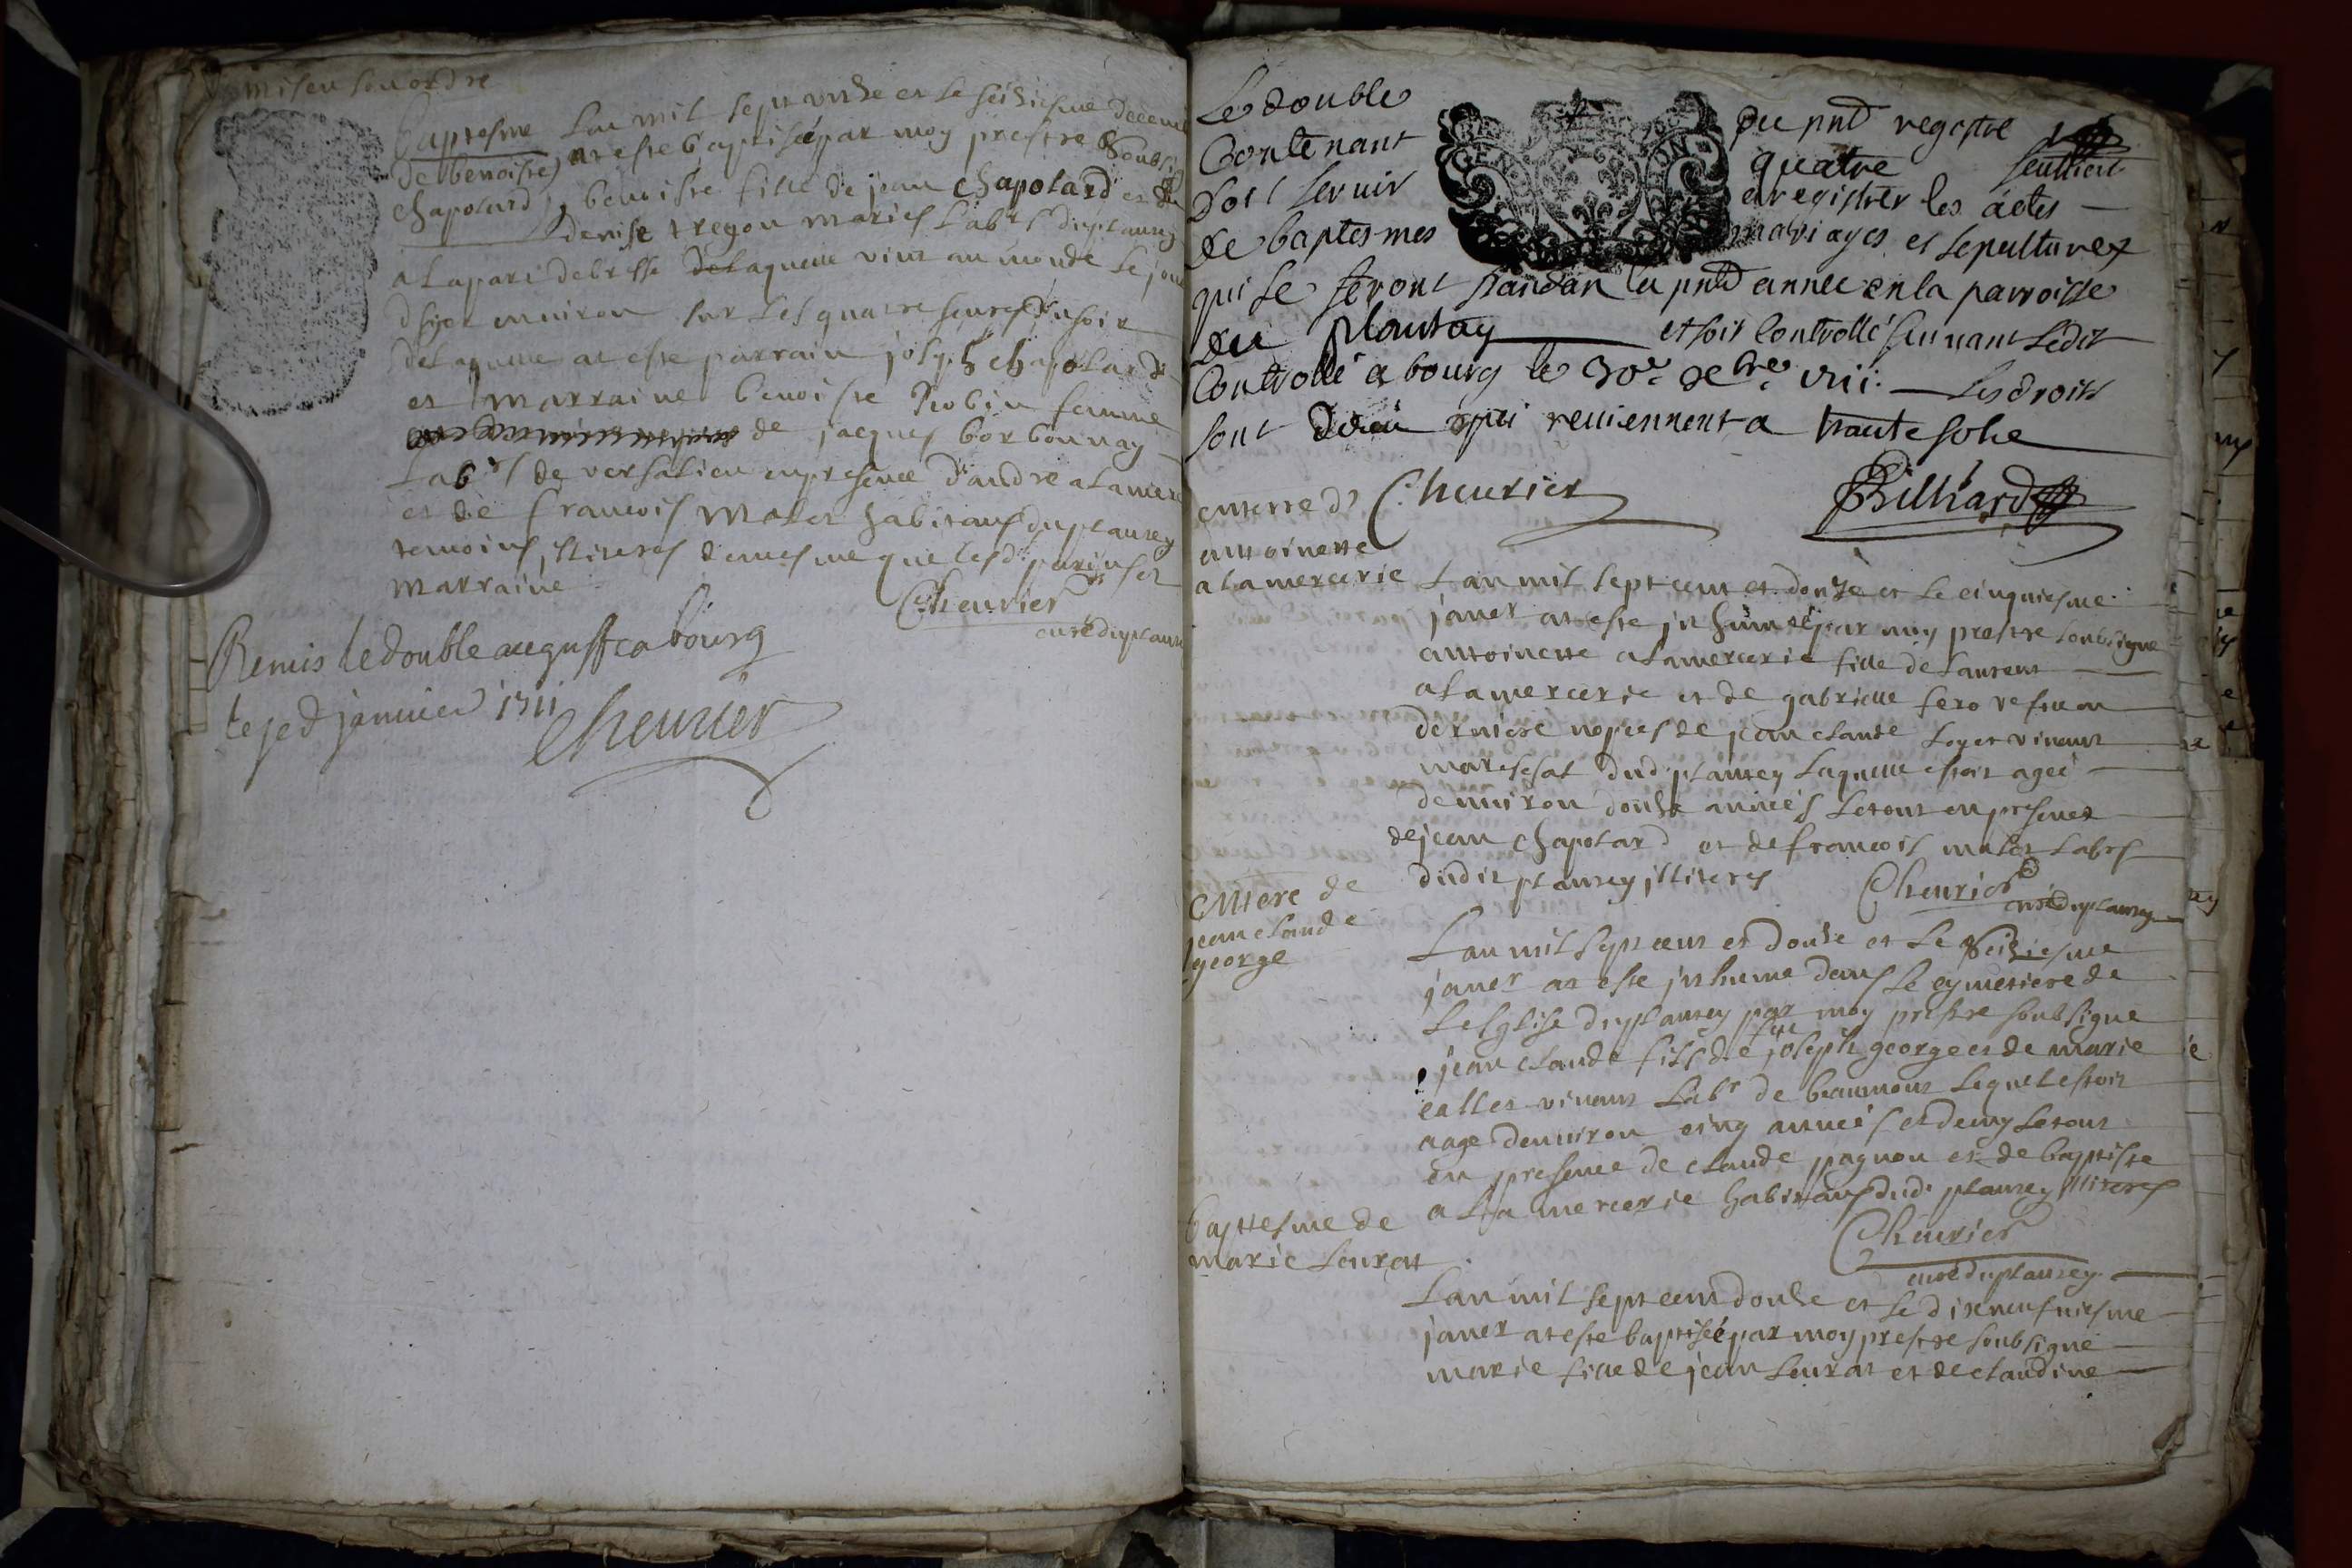 mis en son ordre
Baptesme Lan mil sept onze et le seiziesme decem
de benoiste at este baptisée par moy prestre soubsi
chapotard benoiste fille de jean chapotard et de
denise tregon mariés Labrs du plantey
a la part de bresse de laquelle vint au monde le jour
dhyer environ sur les quatre heures du soir
de laquelle at este parrain joseph chapotard
et marraine benoiste Robin femme
de jacques borbonnay
Labrs de versalieu en presence d'andre alamerc
et de francois molet habitans du plantey
temoins, illiteres de mesme que lesd. parin et
marraine
Cheurier
curé du plantey
Remis le double au greffe a bourg
le je d janvier 1711
Cheurier
Le double du pnt registre
Contenant quatre feuillets
doit servir enregistrer les actes
de baptesmes mariages et sepultures
qui se feront pandan la pnt année en la parroisse
du plantay et soit controllé suivant ledit
Controllé a bourg le 30e xbre 1711 Les droits
sont deux qui reviennent a trante solz
Cheurier Billiard
enterre d'
antoinette
alamercerie Lan mil sept cent et douze et le cinquiesme
janer at este inhumée par moy prestre soubsigne
antoinette alamercerie fille de Laurent
alamercerie et de gabrielle fero vefue en
derniere nopces de jean claude Loyet vivant
mareschal dud. plantey laquelle estoit agée
denuiron douze années le tout en presence
de jean chapotard et de francois molet Labrs
dudit plantey illiteres Cheurier
curé du plantey
Entere de
jean claude
george Lan mil sept cent et douze et le seiziesme
janer at este inhume dans le cymetiere de
Lesglise du plantey par moy prestre soubsigne
jean claude fils de feu joseph george et de marie
callet vivant Labr de beaumont lequel estoit
aage denuiron cinq années et demy le tout
en presence de claude pagnon et de baptiste
a la mercerie habitans dud. plantey illiteres
Cheurier
curé du plantey
baptesme de
marie Leurat
Lan mil sept cent douze et le dixneufuiesme
janer at este baptisée par moy prestre soubsigne
marie fille de jean Leurat et de claudine